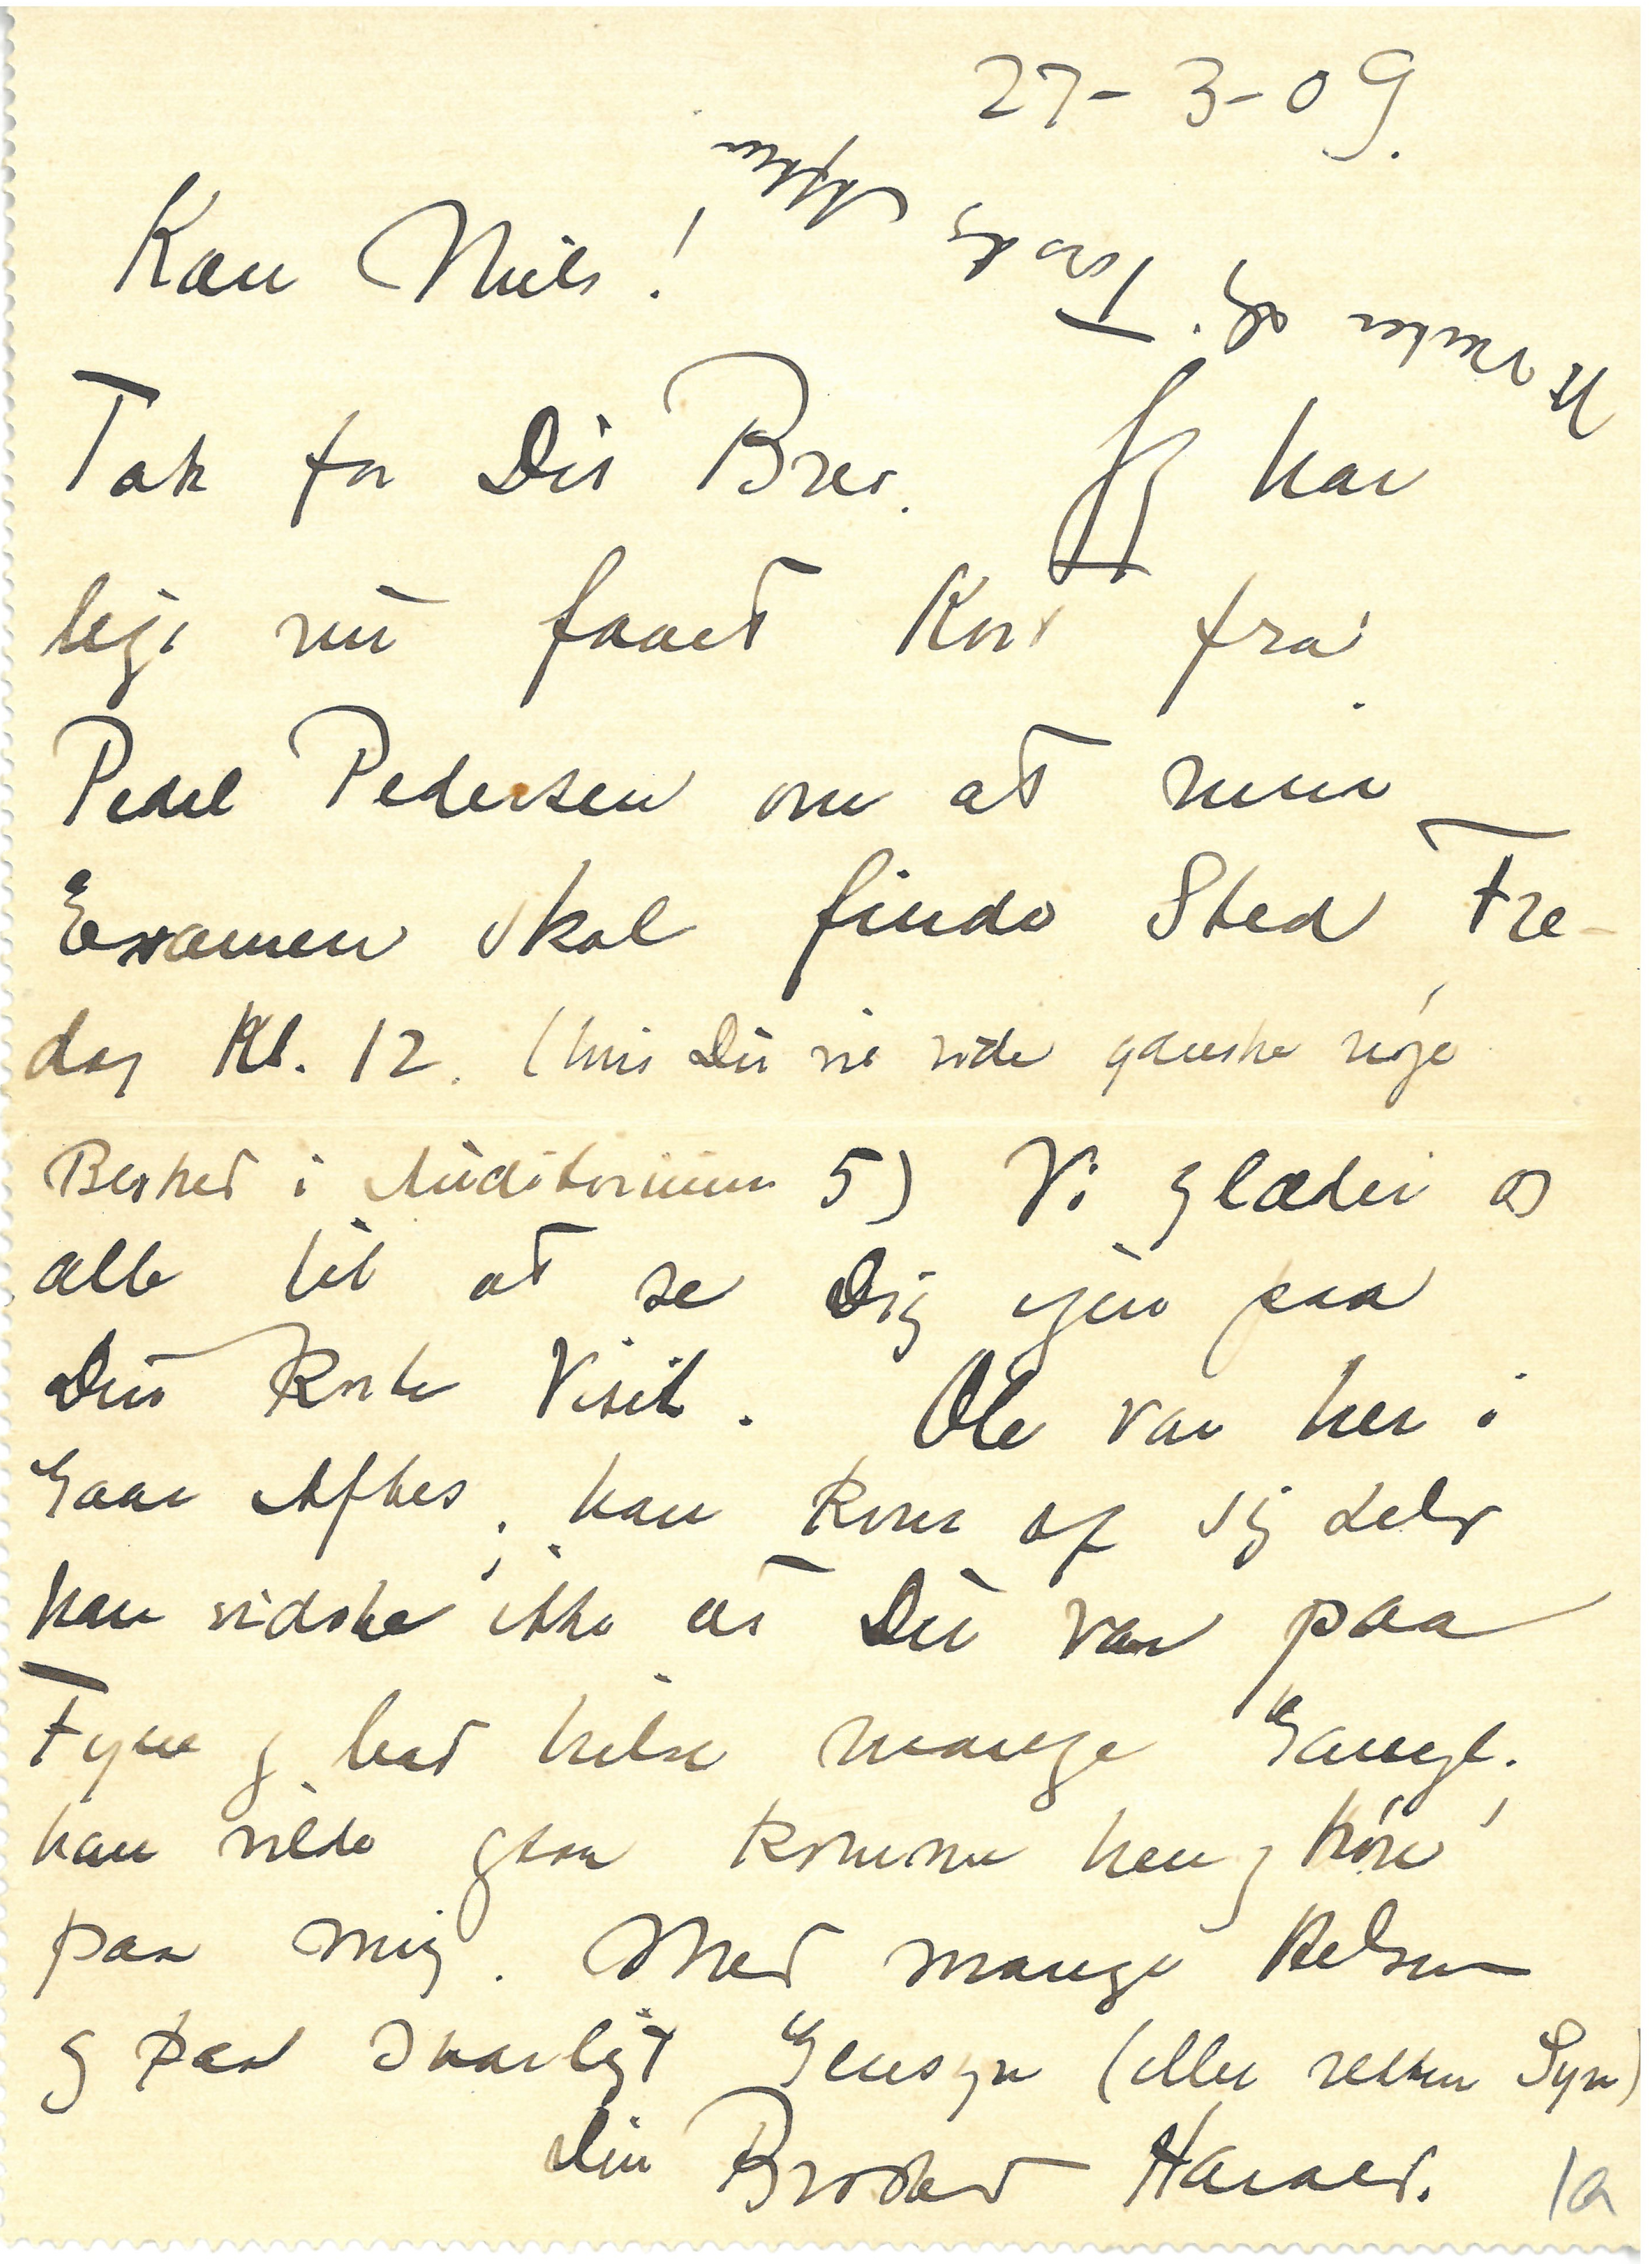 27-3-09.
Kære Niels!
Tak for Dit Brev. Jeg har
lige nu faaet Kort fra
Pedel Pedersen om at min
Examen skal finde Sted Fre-
dag Kl. 12. (hvis Du vil vide ganske nøje
Besked i Auditorium 5) Vi glæder os
alle til at se Dig igen paa
Din korte Visit. Ole var her i
Gaar Aftes, han kom af sig selv
han vidste ikke at Du var paa
Fyn og bad hilse mange Gange.
han vilde gerne komme hen og høre
paa mig. Med mange Hilsner
og paa snarligt Gensyn (eller retter Syn)
Din Broder Harald.
1a
Torsdag Aften